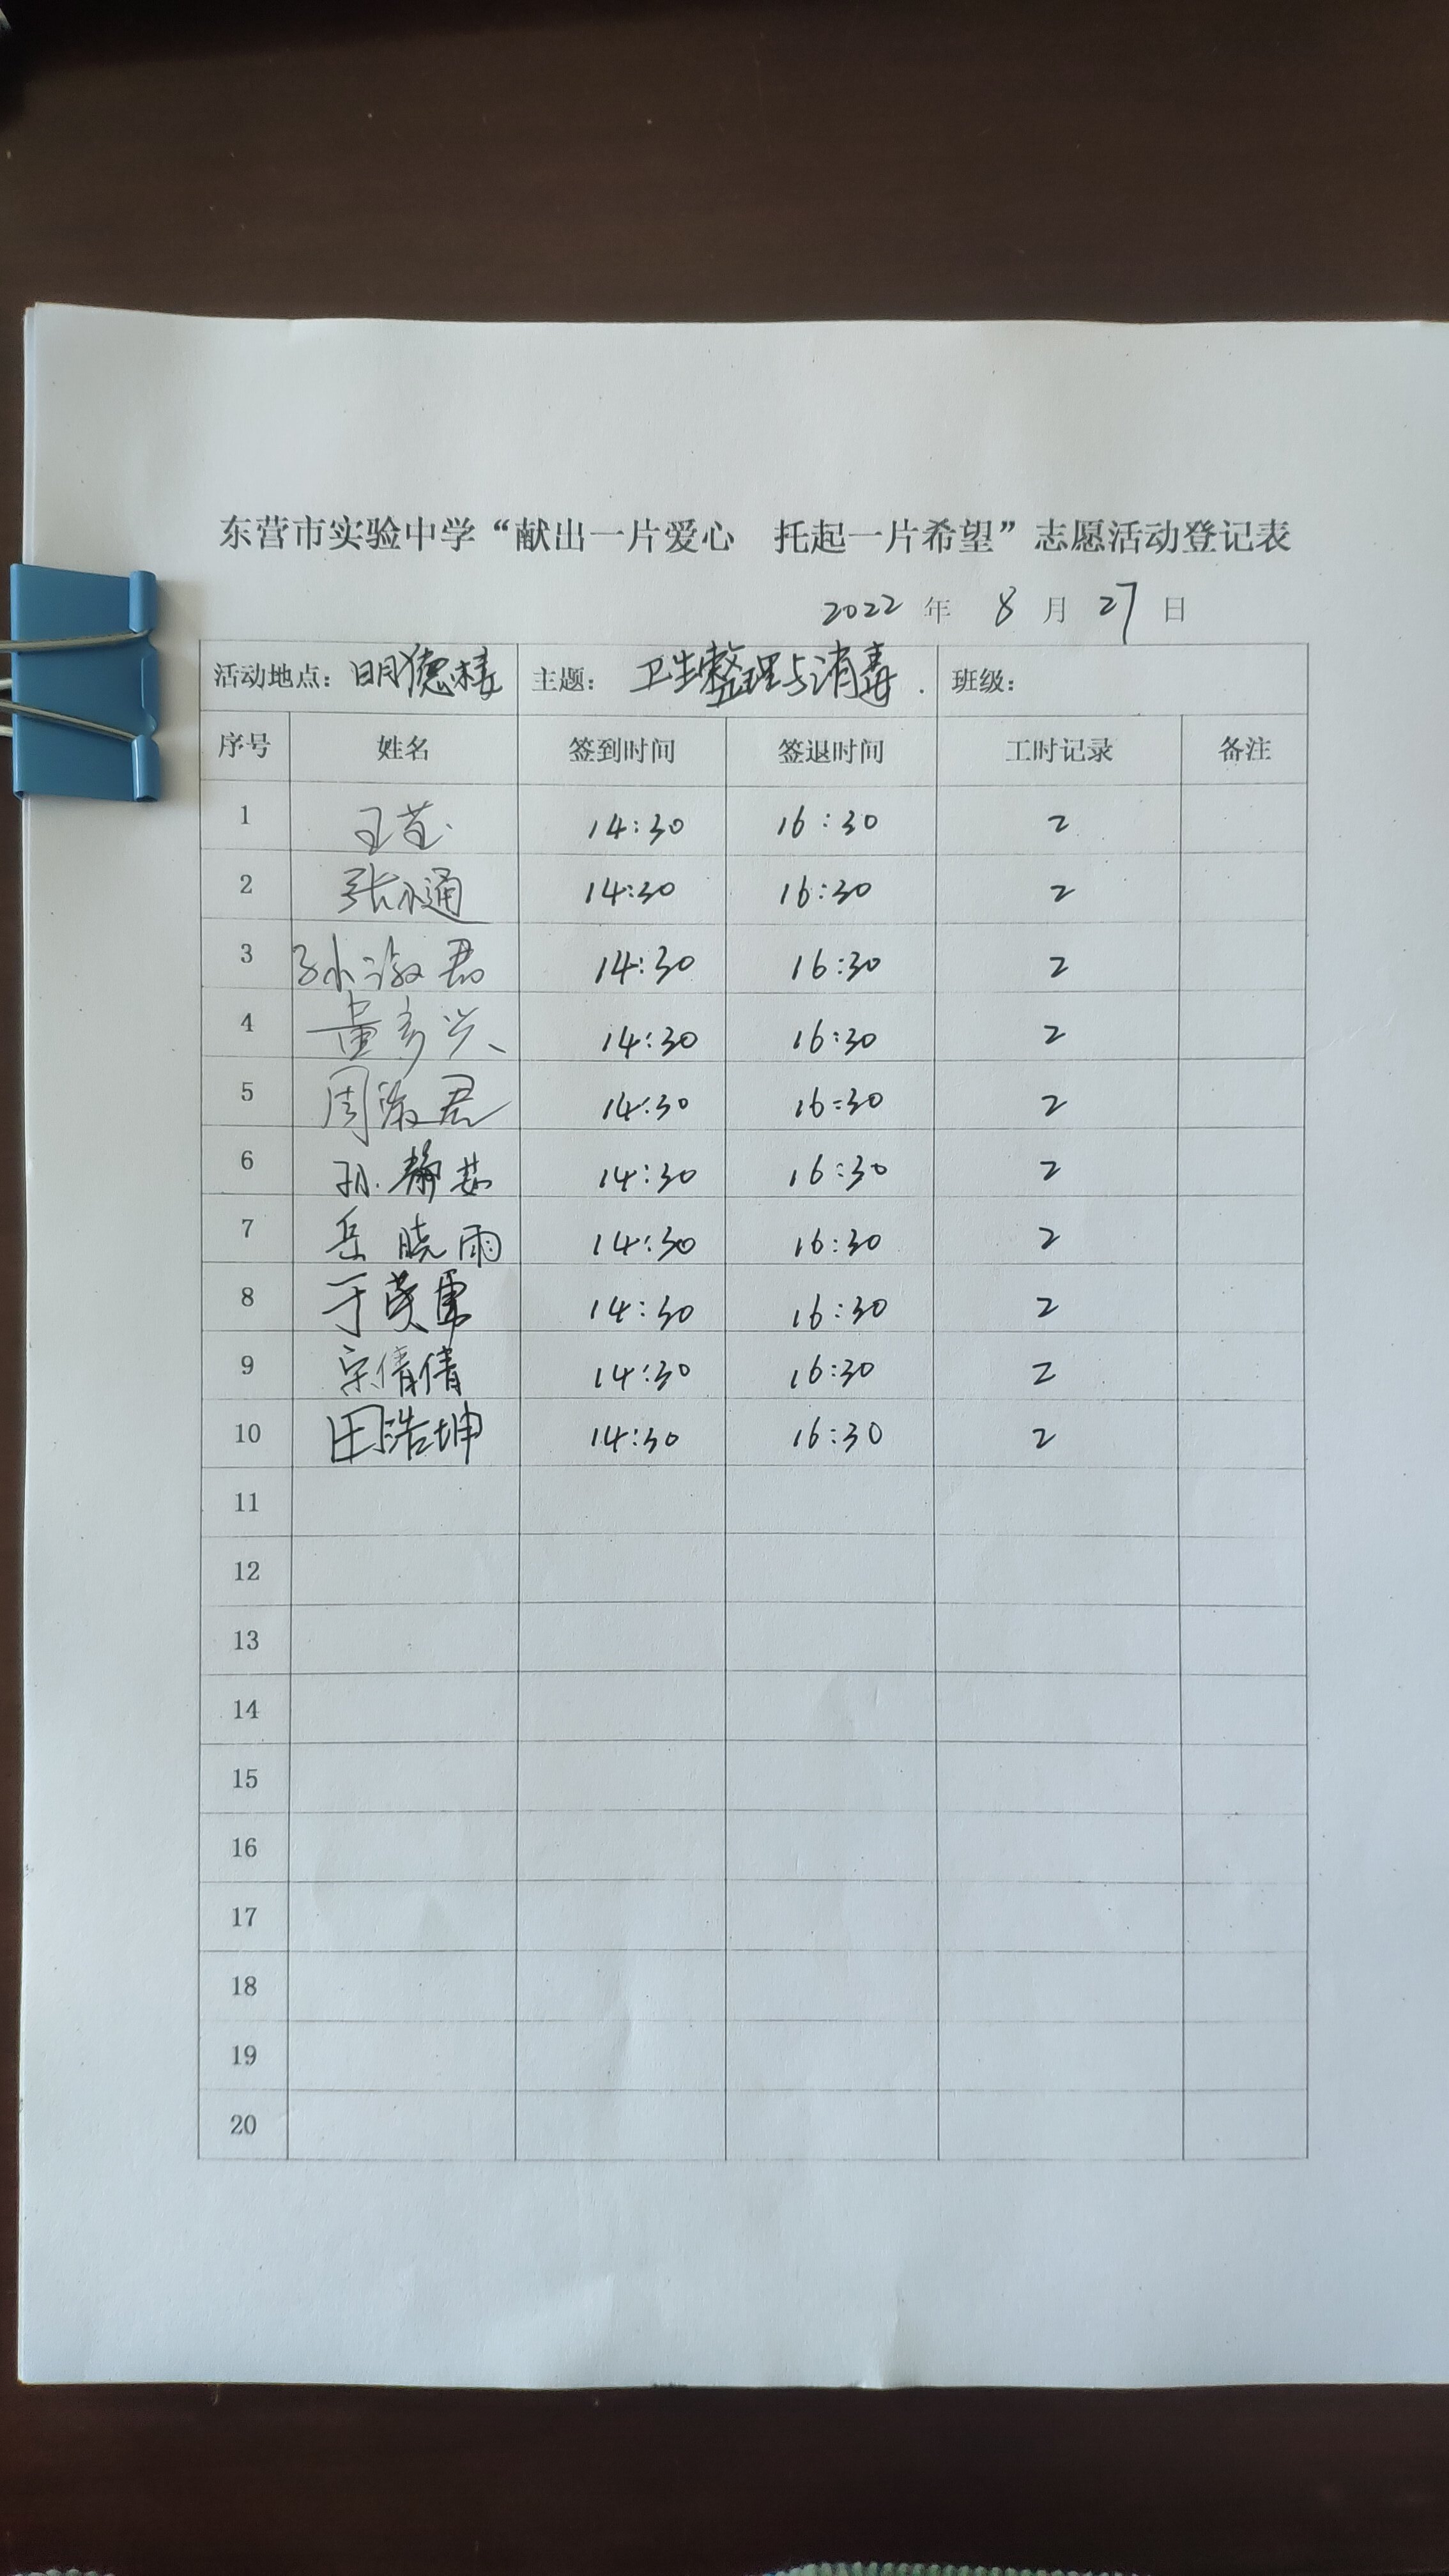 东营市实验中学“献出一片爱心 托起一片希望”志愿活动登记表
2022 年 8 月 27 日
活动地点：明德楼 主题： 卫生整理与消毒. 班级：
序号 姓名 签到时间 签退时间 工时记录 备注
1 王 14:30 16:30 2
2 张 通 14:30 16:30 2
3 孙淑君 14:30 16:30 2
4 董 兴 14:30 16:30 2
5 周淑君 14:30 16:30 2
6 孙静茹 14:30 16:30 2
7 岳晓雨 14:30 16:30 2
8 于 14:30 16:30 2
9 宋倩倩 14:30 16:30 2
10 田浩坤 14:30 16:30 2
11
12
13
14
15
16
17
18
19
20